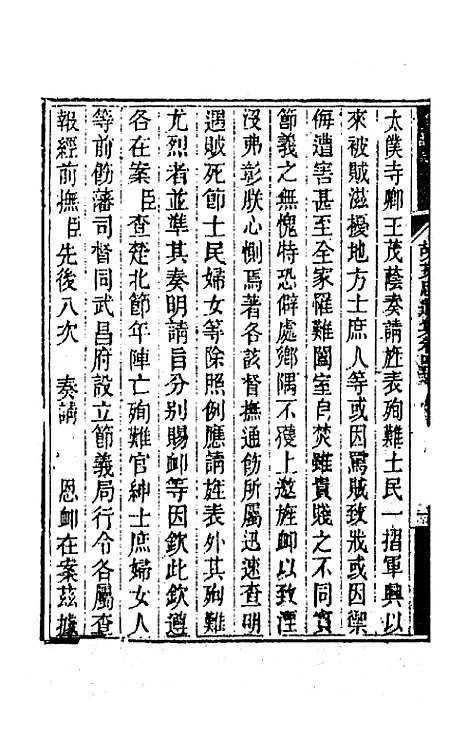 太僕寺卿王茂蔭奏請旌表殉難士民一摺軍興以
來被賊滋擾地方士庶人等或因罵賊致戕或因禦
侮遭害甚至全家罹難闔室自焚雖貴賤之不同實
節義之無愧特恐僻處鄉隅不獲上邀旌卹以致湮
沒弗彰朕心惻焉著各該督撫通飭所屬迅速查明
遇賊死節士民婦女等除照例應請旌表外其殉難
尤烈者並準其奏明請旨分別賜卹等因欽此欽遵
各在案臣查楚北節年陣亡殉難官紳士庶婦女人
等前飭藩司督同武昌府設立節義局行令各屬查
報經前撫臣先後八次 奏請 恩卹在案茲據